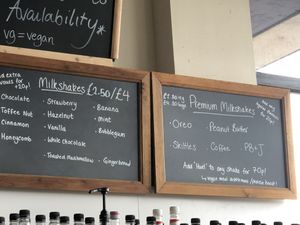 to
Availability*
vg = vegan
Milkshakes £2.50/£4
extra
for
Chocolate
Toffee Nut
Cinnamon
Honeycomb
Strawberry
Hazelnut
Vanilla
White chocolate
Toasted Marshmallow
Banana
Mint
Bubblegum
Gingerbread
Premium Milkshakes
Oreo
Peanut Butter
Skittles
Coffee
PB+J
Add "Malt" to any shake for 70p!